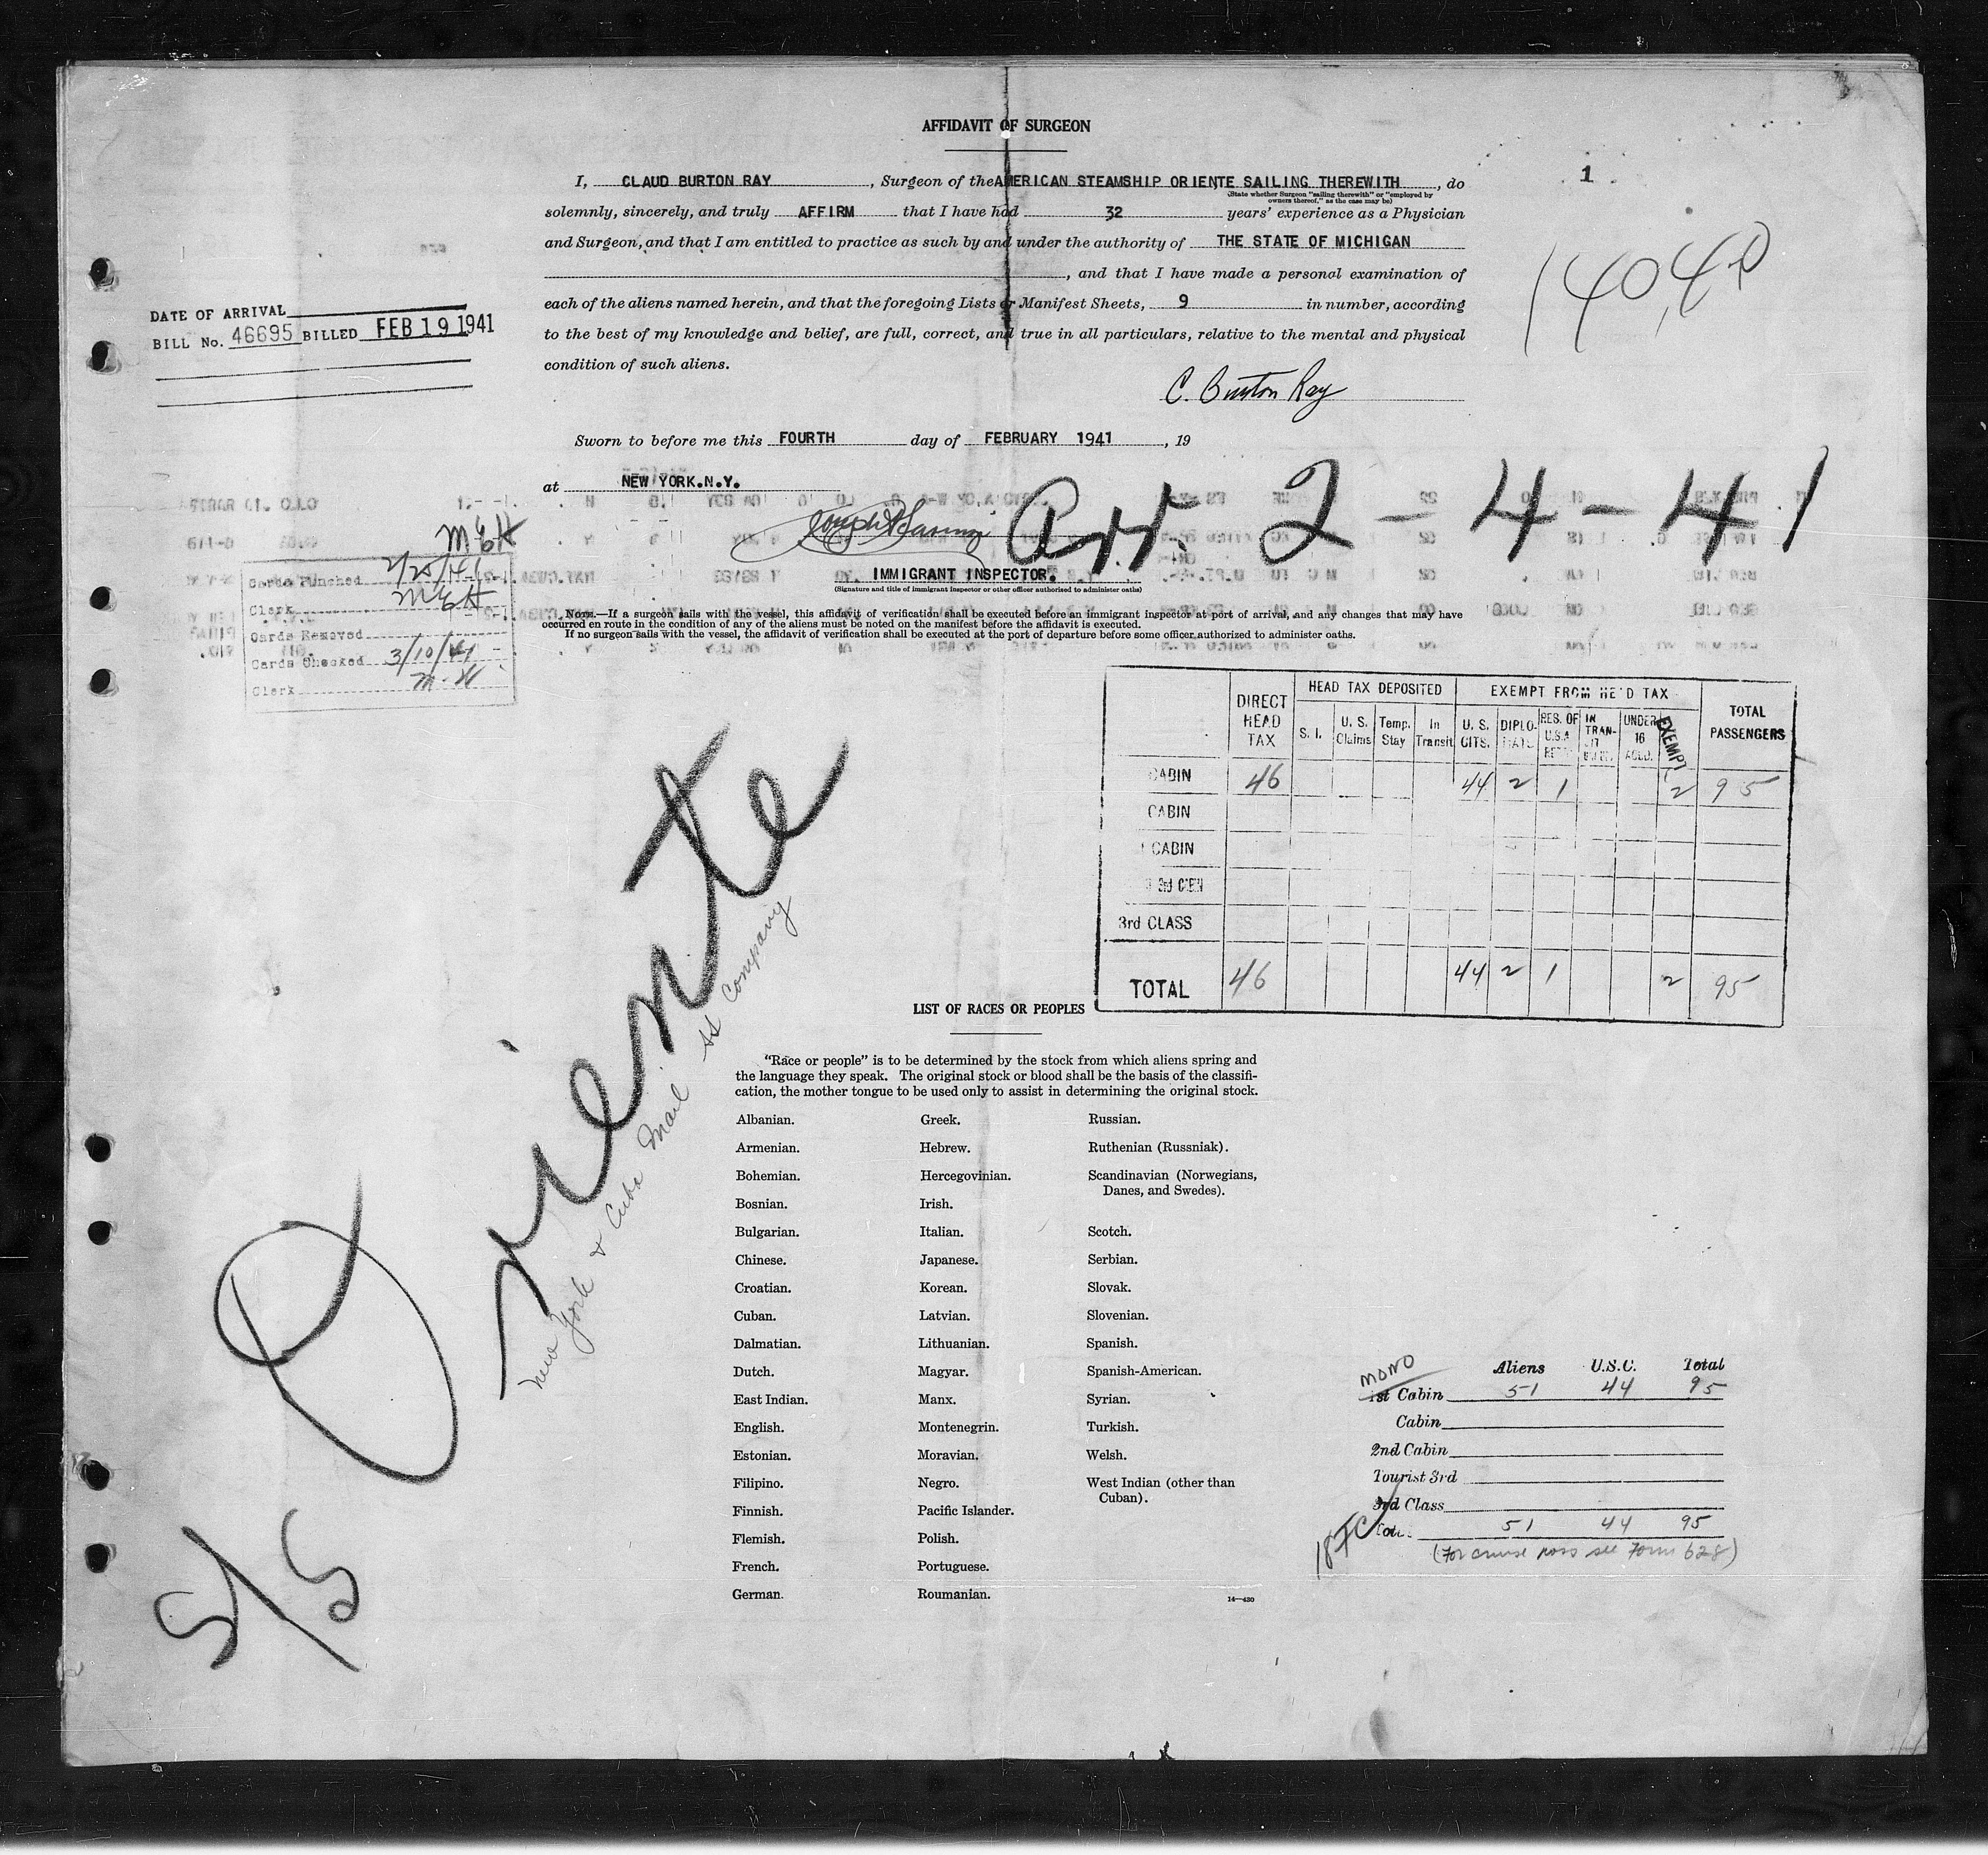 AFFIDAVIT OF SURGEON
1
I, CLAUD BURTON RAY, Surgeon of the AMERICAN STEAMSHIP ORIENTE SAILING THEREWITH, do
(State whether Surgeon "sailing therewith" or "employed by
owners thereof," as the case may be)
solemnly, sincerely, and truly AFFIRM that I have had 32 years' experience as a Physician
and Surgeon, and that I am entitled to practice as such by and under the authority of THE STATE OF MICHIGAN
, and that I have made a personal examination of
each of the aliens named herein, and that the foregoing Lists or Manifest Sheets, 9 in number, according
to the best of my knowledge and belief, are full, correct, and true in all particulars, relative to the mental and physical
condition of such aliens.
C. Burton Ray
DATE OF ARRIVAL
BILL No. 46695 BILLED FEB 19 1941
Sworn to before me this FOURTH day of FEBRUARY 1941, 19
at NEW YORK.N.Y.
Arr. 2-4-41
IMMIGRANT INSPECTOR.
(Signature and title of immigrant inspector or other officer authorized to administer oaths)
NOTE.—If a surgeon sails with the vessel, this affidavit of verification shall be executed before an immigrant inspector at port of arrival, and any changes that may have
occurred en route in the condition of any of the aliens must be noted on the manifest before the affidavit is executed.
If no surgeon sails with the vessel, the affidavit of verification shall be executed at the port of departure before some officer authorized to administer oaths.
Cards Punched 2/25/41
Clerk
Cards Removed
Cards Checked 3/10/41
Clerk
DIRECT HEAD TAX
HEAD TAX DEPOSITED
EXEMPT FROM HEAD TAX
TOTAL PASSENGERS
S. I. U. S. Claims Temp. Stay In Transit U. S. CITS. DIPLO- RES. OF U.S.A. IN TRAN- UNDER 16 EXEMPT
CABIN 46 44 2 1 2 95
CABIN
CABIN
3rd CLASS
TOTAL 46 44 2 1 2 95
S/S Oriente
New York & Cuba Mail SS Company
LIST OF RACES OR PEOPLES
"Race or people" is to be determined by the stock from which aliens spring and
the language they speak. The original stock or blood shall be the basis of the classifi-
cation, the mother tongue to be used only to assist in determining the original stock.
Albanian.
Armenian.
Bohemian.
Bosnian.
Bulgarian.
Chinese.
Croatian.
Cuban.
Dalmatian.
Dutch.
East Indian.
English.
Estonian.
Filipino.
Finnish.
Flemish.
French.
German.
Greek.
Hebrew.
Hercegovinian.
Irish.
Italian.
Japanese.
Korean.
Latvian.
Lithuanian.
Magyar.
Manx.
Montenegrin.
Moravian.
Negro.
Pacific Islander.
Polish.
Portuguese.
Roumanian.
Russian.
Ruthenian (Russniak).
Scandinavian (Norwegians,
Danes, and Swedes).
Scotch.
Serbian.
Slovak.
Slovenian.
Spanish.
Spanish-American.
Syrian.
Turkish.
Welsh.
West Indian (other than
Cuban).
14—430
Aliens U.S.C. Total
MONO
1st Cabin 51 44 95
Cabin
2nd Cabin
Tourist 3rd
3rd Class
51 44 95
(For cruise pass see Form 628)